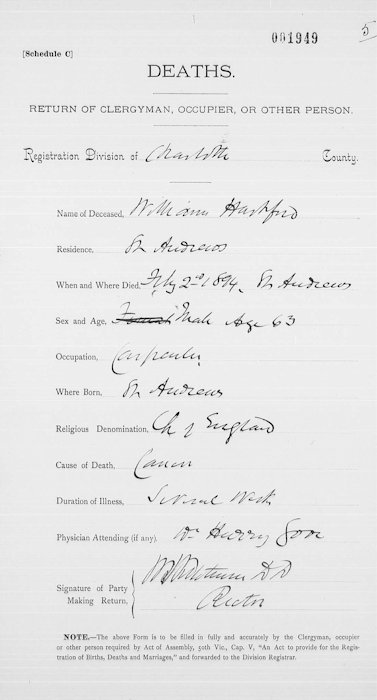 001949
5
[Schedule C]
DEATHS.
RETURN OF CLERGYMAN, OCCUPIER, OR OTHER PERSON.
Registration Division of Charlotte County.
Name of Deceased, William Hartford
Residence, St Andrews
When and Where Died, Feby 2nd 1894. St Andrews
Sex and Age, Male Age 63
Occupation, Carpenter
Where Born, St Andrews
Religious Denomination, Ch of England
Cause of Death, Cancer
Duration of Illness, Several Weeks
Physician Attending (if any). Dr Harry Gove
Signature of Party D D
Making Return, Rector
NOTE.—The above Form is to be filled in fully and accurately by the Clergyman, occupier
or other person required by Act of Assembly, 50th Vic., Cap. V, "An Act to provide for the Regis-
tration of Births, Deaths and Marriages," and forwarded to the Division Registrar.